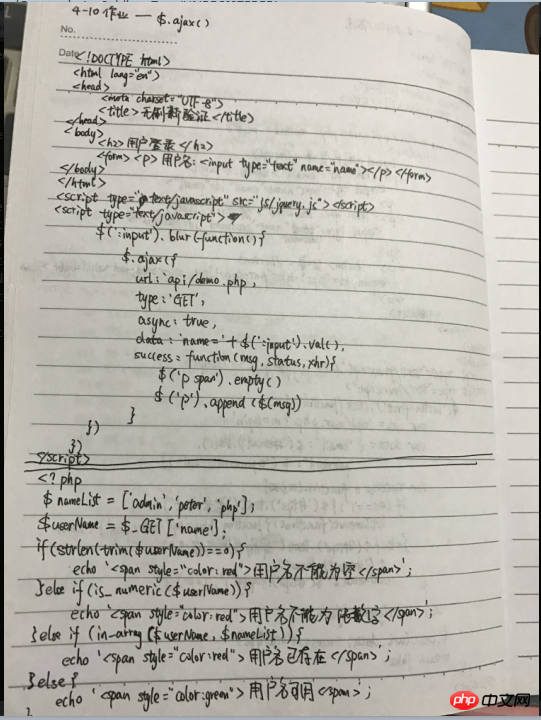 4-10 作业 — $.ajax()
No.
Date
<!DOCTYPE html>
<html lang="en">
<head>
<meta charset="UTF-8">
<title>无刷新验证</title>
</head>
<body>
<h2>用户登录</h2>
<form><p>用户名:<input type="text" name="name"></p></form>
</body>
</html>
<script type="text/javascript" src="js/jquery.js"></script>
<script type="text/javascript">
$(':input').blur(function(){
$.ajax({
url:'api/demo.php,
type:'GET',
async: true,
data: 'name='+$(':input').val(),
success: function(msg,status,xhr){
$('p span').empty()
$('p').append($(msg))
}
})
})
</script>
<?php
$nameList = ['admin','peter','php'];
$userName = $_GET['name'];
if(strlen(trim($userName))==0){
echo '<span style="color:red">用户名不能为空</span>';
}else if(is_numeric($userName)){
echo '<span style="color:red">用户名不能为纯数字</span>';
}else if (in_array($userName,$nameList)){
echo '<span style="color:red">用户名已存在</span>';
}else{
echo '<span style="color:green">用户名可用</span>';
}
php中文网